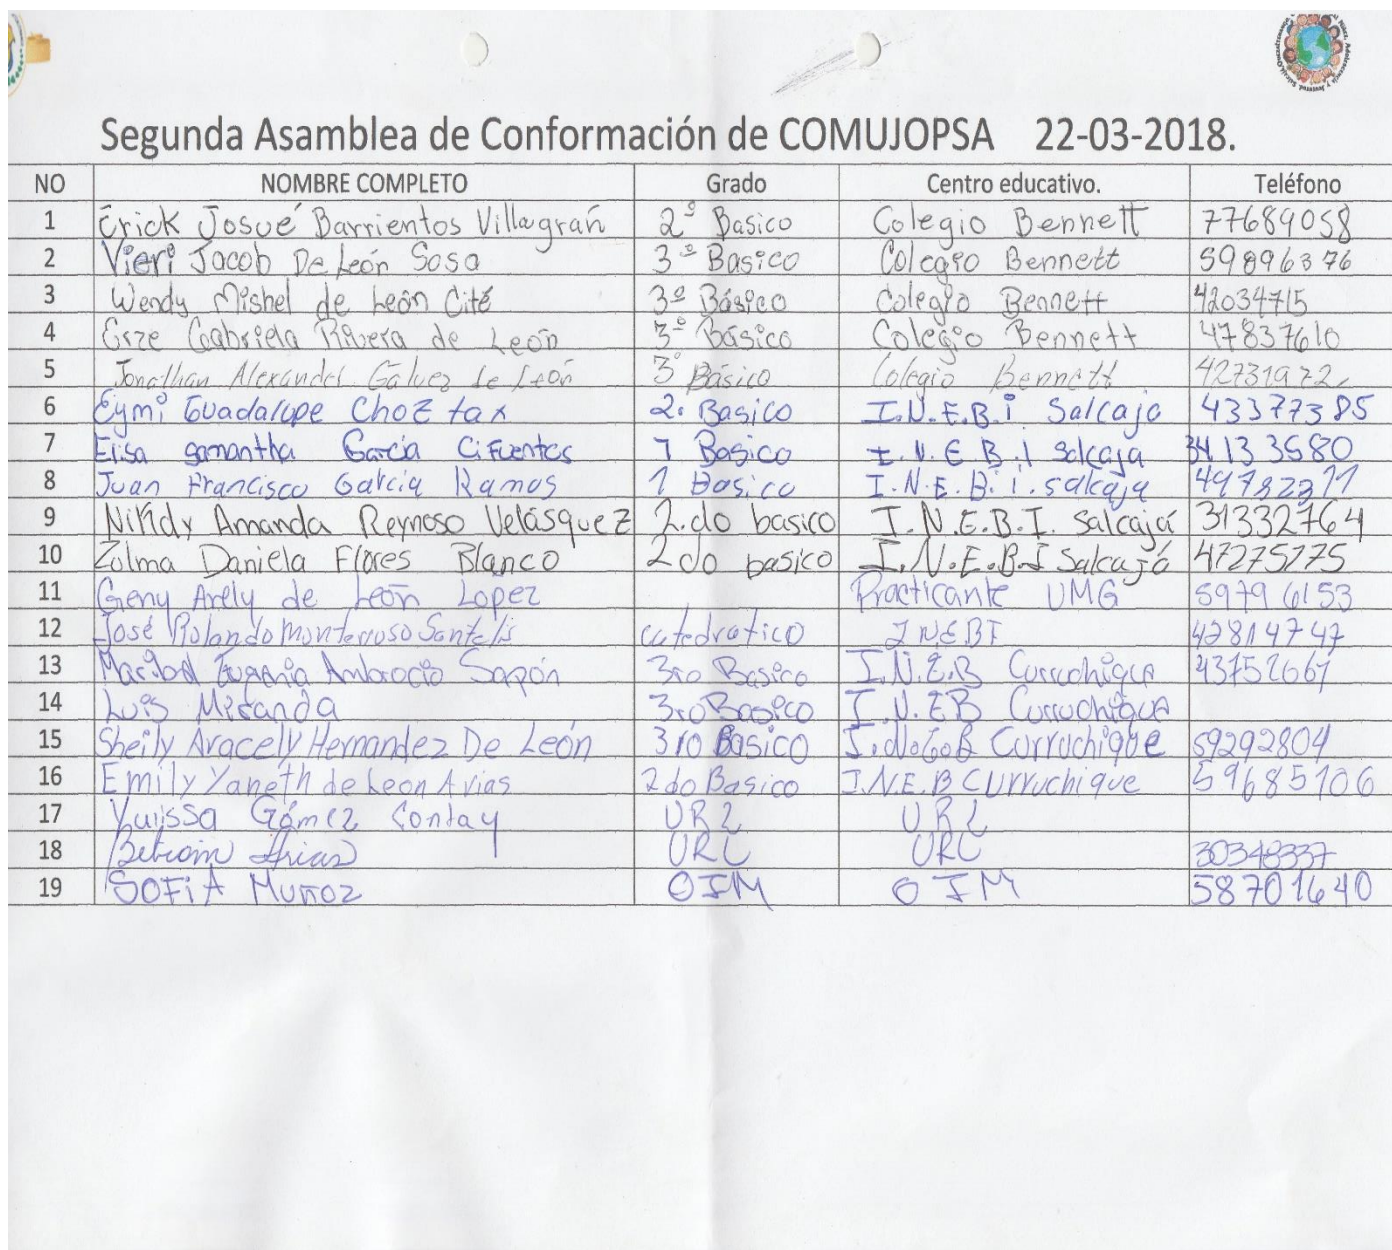 Segunda Asamblea de Conformación de COMUJOPSA 22-03-2018.
NO NOMBRE COMPLETO Grado Centro educativo. Teléfono
1 Erick Josué Barrientos Villagrán 2º Basico Colegio Bennett 77689058
2 Vieri Jacob De León Sosa 3º Basico Colegio Bennett 59896376
3 Wendy Mishel de León Cité 3º Básico Colegio Bennett 42034715
4 Gabriela Rivera de León 3º Básico Colegio Bennett 47837610
5 Jonathan Alexander Gálvez de León 3º Básico Colegio Bennett 42731972
6 Eymi Guadalupe Choz tax 2. Basico I.N.E.B.i Salcaja 43377385
7 Elisa samantha García Cifuentes 1 Basico I.N.E.B.I Salcaja 34133580
8 Juan Francisco Garcia Ramos 1 Basico I.N.E.B.i. salcaja
9 Amanda Reynoso Velásquez 2.do basico I.N.E.B.I. Salcajá 31332764
10 Zulma Daniela Flores Blanco 2do basico I.N.E.B.I Salcajá 47275775
11 Geny Arely de León Lopez Practicante UMG 59796153
12 José Rolando Monterroso catedratico INEBI 42814747
13 Eugenia Ambrocio Sapón 3ro Basico I.N.E.B Curruchique 43752667
14 Luis Miranda 3ro Basico I.N.EB Curruchique
15 Sheily Aracely Hernandez De León 3ro Basico Curruchique 59292804
16 Emily Yaneth de Leon Arias 2do Basico I.N.E.B Curruchique 59685106
17 Gómez URL URL
18 Arias URL URL 30348337
19 SOFiA MUÑOZ OJM OJM 58701640